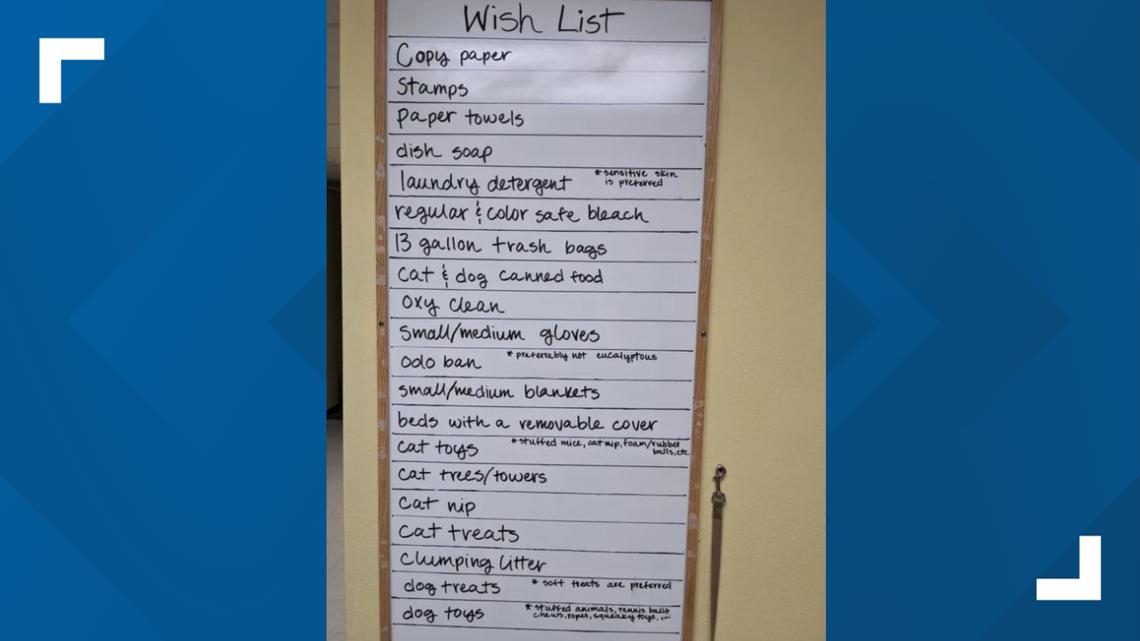 Wish List
Copy paper
Stamps
paper towels
dish soap
laundry detergent * sensitive skin
is preferred
regular & color safe bleach
13 gallon trash bags
Cat & dog canned food
Oxy clean
Small/medium gloves
Odo ban * preferrably not eucalyptous
small/medium blankets
beds with a removable cover
Cat toys * stuffed mice, cat nip, foam/rubber
balls, etc
Cat trees/towers
Cat nip
Cat treats
Clumping litter
dog treats * soft treats are preferred
dog toys * stuffed animals, tennis balls
chews, ropes, squeaky toys,